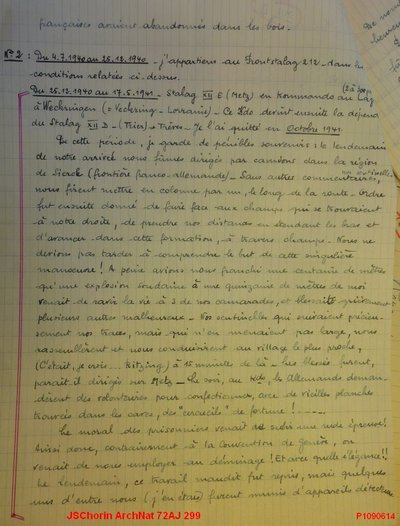 françaises avaient abandonnés dans les bois.
N°2 : Du 4.7.1940 au 25.12.1940 - j'appartiens au Frontstalag 212 - dans les
conditions relatées ci-dessus.
Du 25.12.1940 au 17.5.1941 - Stalag XII E (Metz) en Kommando au Lag
à Weckringen (= Veckring - Lorraine) - Ce Kdo devint ensuite la dépend
du Stalag XII D - (Trier) Trèves - Je l'ai quitté en Octobre 1941.
De cette période, je garde de pénibles souvenirs : le lendemain
de notre arrivée nous fûmes dirigés par camions dans la région
de Sierck (frontière franco-allemande) - Sans autres commentaires, nos sentinelles
nous firent mettre en colonne par un, le long de la route - Ordre
fut ensuite donné de faire face aux champs qui se trouvaient
à notre droite, de prendre nos distances en étendant les bras et
d'avancer dans cette formation, à travers champs - Nous ne
devions pas tarder à comprendre le but de cette singulière
manœuvre ! A peine avions nous franchi une centaine de mètres
qu'une explosion soudaine à une quinzaine de mètres de moi
venait de ravir la vie à 3 de nos camarades, et blessait grièvement
plusieurs autres malheureux - Nos sentinelles qui suivaient précieu-
sement nos traces, mais qui n'en menaient pas large, nous
rassemblèrent et nous conduisirent au village le plus proche,
(C'était, je crois... Ritzing) à 15 minutes de là - les blessés furent,
paraît-il dirigés sur Metz - Le soir, au Kdo, les Allemands deman-
dèrent des volontaires pour confectionner, avec de vieilles planches
trouvées dans les caves, des "cercueils" de fortune !
Le moral des prisonniers venait de subir une rude épreuve !
Ainsi donc, contrairement à la Convention de Genève, on
venait de nous employer au déminage ! Et avec quelle élégance !!
Le lendemain, ce travail maudit fut repris, mais quelques
uns d'entre nous (j'en étais) furent munis d'appareils détecteur
JSChorin ArchNat 72AJ 299
P1090614